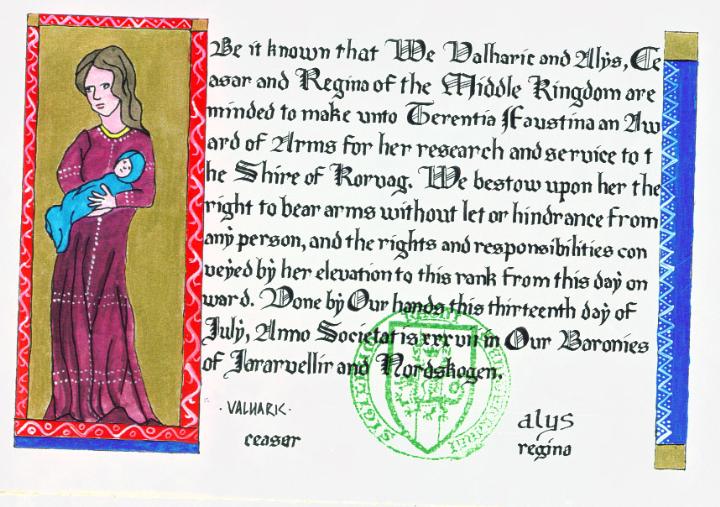 Be it known that We Valharic and Alys, Ce
asar and Regina of the Middle Kingdom are
minded to make unto Terentia Faustina an Aw
ard of Arms for her research and service to t
he Shire of Korvag. We bestow upon her the
right to bear arms without let or hindrance from
any person, and the rights and responsibilities con
veyed by her elevation to this rank from this day on
ward. Done by Our hands this thirteenth day of
July, Anno Societatis xxxvii in Our Baronies
of Jararvellir and Nordskogen.
· VALHARIC ·
ceaser
alys
regina